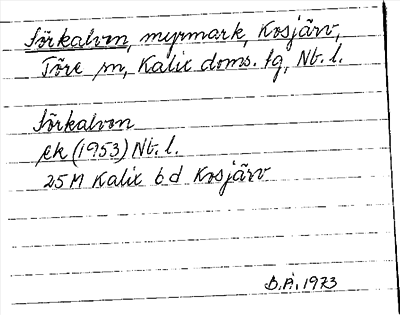 Sörkalven, myrmark, Kosjärv,
Töre sn, Kalix doms. fg, Nb. l.
Sörkalven
ek (1953) Nb. l.
25M Kalix 6d Kosjärv
D.A. 1973